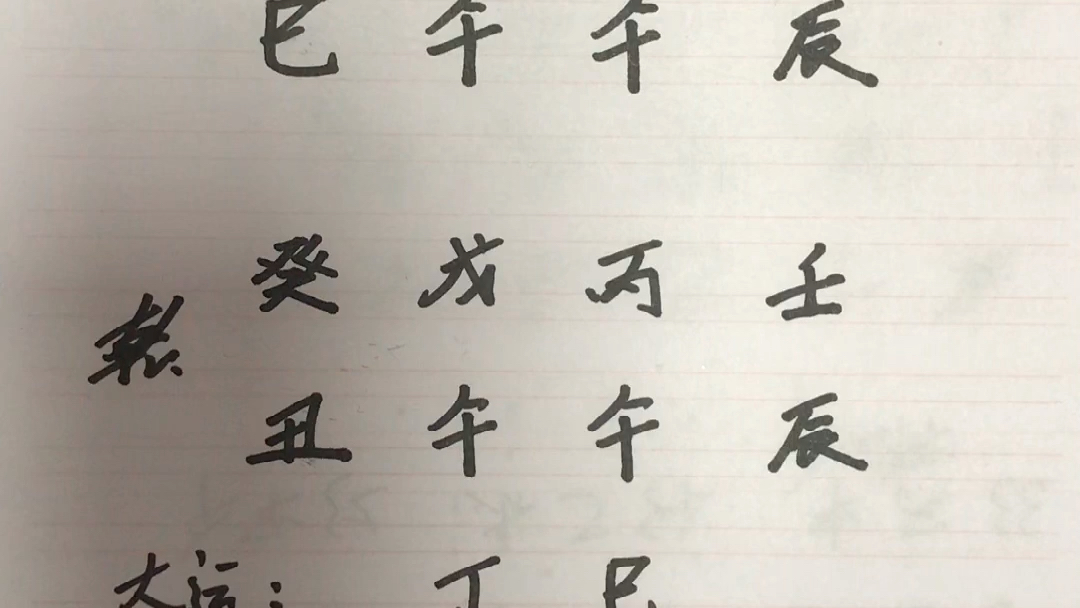 巳 午 午 辰
癸 戊 丙 壬
乾
丑 午 午 辰
大运: 丁 巳